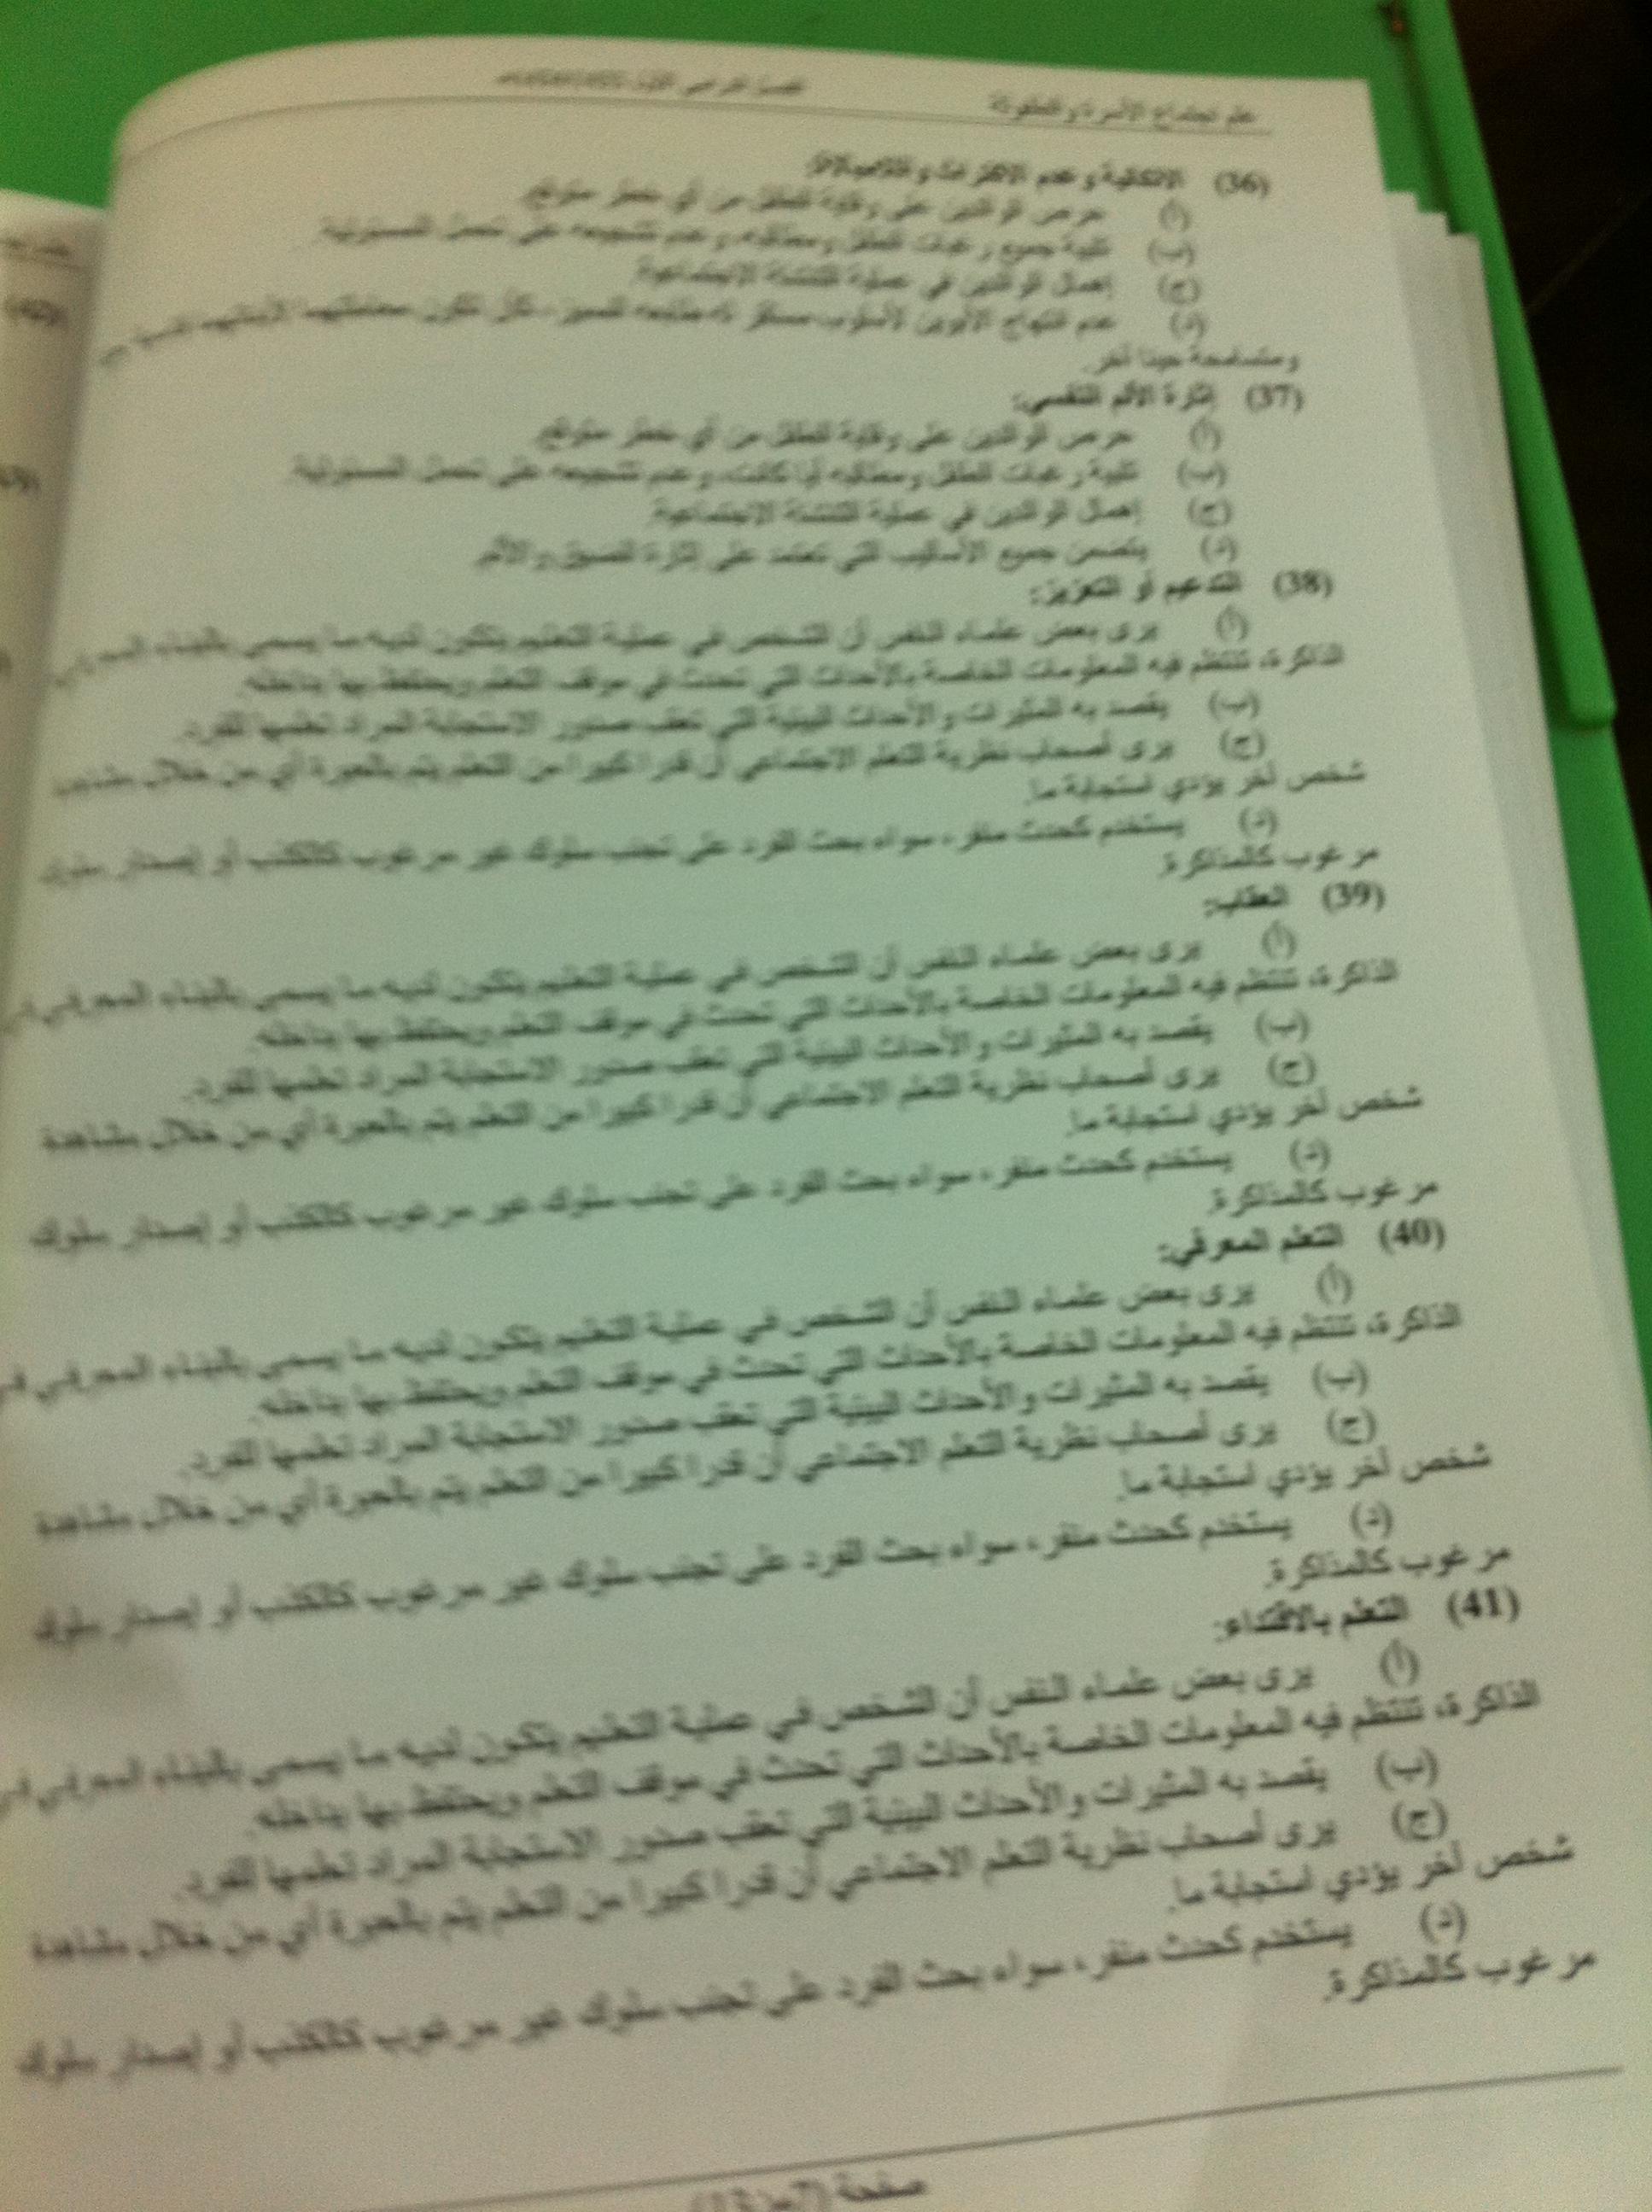 علم اجتماع الأسرة والطفولة
(36) الاتكالية وعدم الاكتراث واللامبالاة:
(أ) حرص الوالدين على وقاية الطفل من أي خطر متوقع.
(ب) تلبية جميع رغبات الطفل ومطالبه، وعدم تشجيعه على تحمل المسئولية.
(ج) إهمال الوالدين في عملية التنشئة الاجتماعية.
(د) عدم انتهاج الأبوين لأسلوب مستقر
ومتسامحة حينا آخر.
(37) إثارة الألم النفسي:
(أ) حرص الوالدين على وقاية الطفل من أي خطر متوقع.
(ب) تلبية رغبات الطفل ومطالبه أيا كانت، وعدم تشجيعه على تحمل المسئولية.
(ج) إهمال الوالدين في عملية التنشئة الاجتماعية.
(د) يتضمن جميع الأساليب التي تعتمد على إثارة الضيق والألم.
(38) التدعيم أو التعزيز:
(أ) يرى بعض علماء النفس أن الشخص في عملية التعليم يتكون لديه ما يسمى بالبناء المعرفي
الذاكرة، تنتظم فيه المعلومات الخاصة بالأحداث التي تحدث في موقف التعلم ويحتفظ بها بداخله.
(ب) يقصد به المثيرات والأحداث البيئية التي تعقب صدور الاستجابة المراد تعلمها للفرد.
(ج) يرى أصحاب نظرية التعلم الاجتماعي أن قدرا كبيرا من التعلم يتم بالعبرة أي من خلال
شخص آخر يؤدي استجابة ما.
(د) يستخدم كحدث منفر، سواء بحث الفرد على تجنب سلوك غير مرغوب كالكذب أو إصدار سلوك
مرغوب كالمذاكرة.
(39) العقاب:
(أ) يرى بعض علماء النفس أن الشخص في عملية التعليم يتكون لديه ما يسمى بالبناء المعرفي
الذاكرة، تنتظم فيه المعلومات الخاصة بالأحداث التي تحدث في موقف التعلم ويحتفظ بها بداخله.
(ب) يقصد به المثيرات والأحداث البيئية التي تعقب صدور الاستجابة المراد تعلمها للفرد.
(ج) يرى أصحاب نظرية التعلم الاجتماعي أن قدرا كبيرا من التعلم يتم بالعبرة أي من خلال مشاهدة
شخص آخر يؤدي استجابة ما.
(د) يستخدم كحدث منفر، سواء بحث الفرد على تجنب سلوك غير مرغوب كالكذب أو إصدار سلوك
مرغوب كالمذاكرة.
(40) التعلم المعرفي:
(أ) يرى بعض علماء النفس أن الشخص في عملية التعليم يتكون لديه ما يسمى بالبناء المعرفي في
الذاكرة، تنتظم فيه المعلومات الخاصة بالأحداث التي تحدث في موقف التعلم ويحتفظ بها بداخله.
(ب) يقصد به المثيرات والأحداث البيئية التي تعقب صدور الاستجابة المراد تعلمها للفرد.
(ج) يرى أصحاب نظرية التعلم الاجتماعي أن قدرا كبيرا من التعلم يتم بالعبرة أي من خلال مشاهدة
شخص آخر يؤدي استجابة ما.
(د) يستخدم كحدث منفر، سواء بحث الفرد على تجنب سلوك غير مرغوب كالكذب أو إصدار سلوك
مرغوب كالمذاكرة.
(41) التعلم بالاقتداء:
(أ) يرى بعض علماء النفس أن الشخص في عملية التعليم يتكون لديه ما يسمى بالبناء المعرفي في
الذاكرة، تنتظم فيه المعلومات الخاصة بالأحداث التي تحدث في موقف التعلم ويحتفظ بها بداخله.
(ب) يقصد به المثيرات والأحداث البيئية التي تعقب صدور الاستجابة المراد تعلمها للفرد.
(ج) يرى أصحاب نظرية التعلم الاجتماعي أن قدرا كبيرا من التعلم يتم بالعبرة أي من خلال مشاهدة
شخص آخر يؤدي استجابة ما.
(د) يستخدم كحدث منفر، سواء بحث الفرد على تجنب سلوك غير مرغوب كالكذب أو إصدار سلوك
مرغوب كالمذاكرة.
صفحة (7من13)